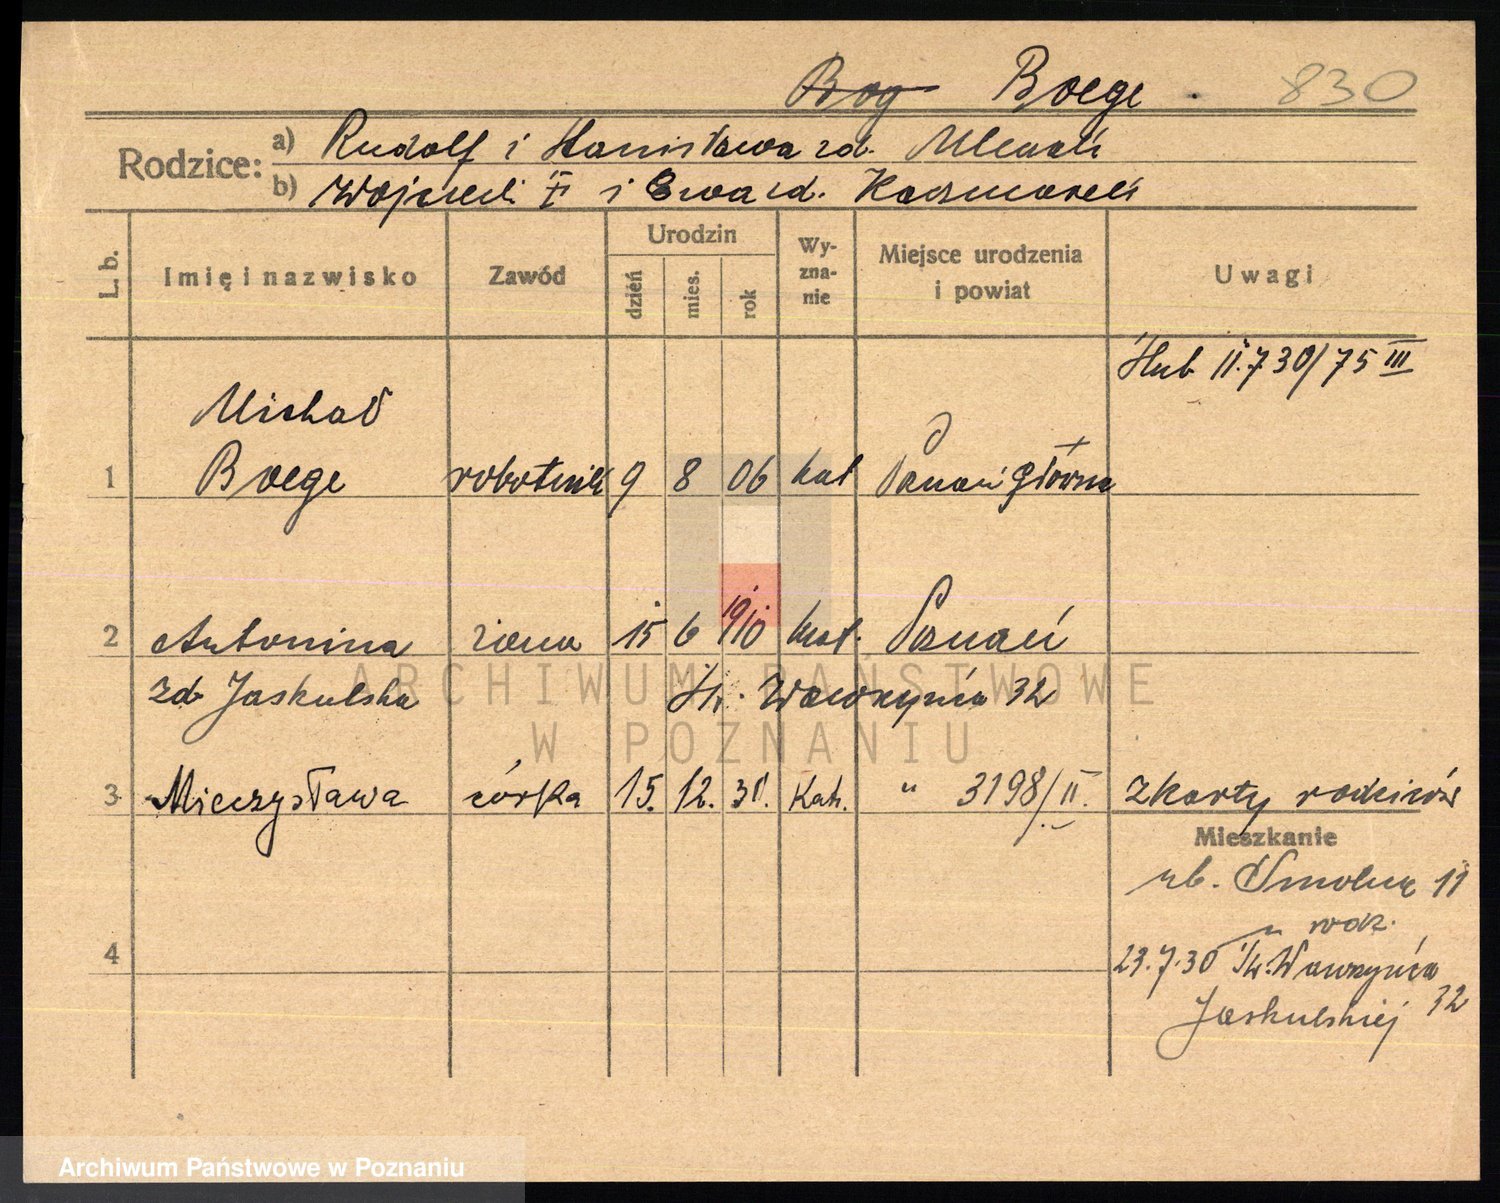 Bog Boege 830
Rodzice: a) Rudolf i Stanisława zd.
b) Wojciech i Ewa zd. Kaczmarek
L. b. Imię i nazwisko Zawód Urodzin dzień mies. rok Wy-zna-nie Miejsce urodzenia i powiat Uwagi
Ślub 11.7 30/75 III
Michał
1 Boege robotnik 9 8 06 kat Poznań Główna
2 Antonina żona 15 6 1910 kat. Poznań
zd Jaskulska Św. Wawrzyńca 32
3 Mieczysława córka 15. 12. 31. Kat. " 3198/II. z karty rodziców
Mieszkanie
11
rodz.
4 23.7.30 Św. Wawrzyńca
Jaskulskiej 32
ARCHIWUM PAŃSTWOWE
W POZNANIU
Archiwum Państwowe w Poznaniu